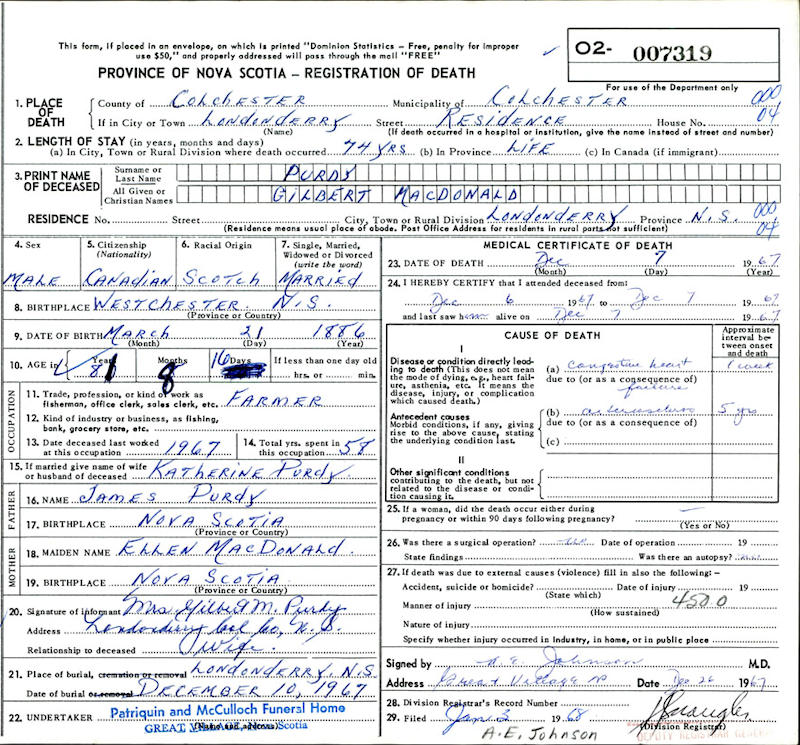 This form, if placed in an envelope, on which is printed "Dominion Statistics – Free, penalty for improper
use $50," and properly addressed will pass through the mail "FREE"
✓ O2- 007319
PROVINCE OF NOVA SCOTIA – REGISTRATION OF DEATH
For use of the Department only
1. PLACE OF DEATH County of COLCHESTER Municipality of COLCHESTER 000
If in City or Town LONDONDERRY Street RESIDENCE House No. 04
(Name) (If death occurred in a hospital or institution, give the name instead of street and number)
2. LENGTH OF STAY (in years, months and days)
(a) In City, Town or Rural Division where death occurred 74 YRS (b) In Province LIFE (c) In Canada (if immigrant)
3. PRINT NAME OF DECEASED Surname or Last Name PURDY
All Given or Christian Names GILBERT MACDONALD
RESIDENCE No. Street City, Town or Rural Division LONDONDERRY Province N.S. 000
(Residence means usual place of abode. Post Office Address for residents in rural parts not sufficient) 04
4. Sex 5. Citizenship (Nationality) 6. Racial Origin 7. Single, Married, Widowed or Divorced (write the word)
MALE CANADIAN SCOTCH MARRIED
8. BIRTHPLACE WESTCHESTER N.S.
(Province or Country)
9. DATE OF BIRTH MARCH 21 1886
(Month) (Day) (Year)
10. AGE in Years 81 Months 8 Days 16 If less than one day old
hrs. or min.
OCCUPATION
11. Trade, profession, or kind of work as fisherman, office clerk, sales clerk, etc. FARMER
12. Kind of industry or business, as fishing, bank, grocery store, etc.
13. Date deceased last worked at this occupation 1967 14. Total yrs. spent in this occupation 58
15. If married give name of wife or husband of deceased KATHERINE PURDY
FATHER
16. NAME JAMES PURDY
17. BIRTHPLACE NOVA SCOTIA
(Province or Country)
MOTHER
18. MAIDEN NAME ELLEN MACDONALD
19. BIRTHPLACE NOVA SCOTIA
(Province or Country)
20. Signature of informant Mrs Gilbert M. Purdy
Address Londonderry Col Co, N.S.
Relationship to deceased Wife
21. Place of burial, cremation or removal LONDONDERRY, N.S.
Date of burial or removal DECEMBER 10, 1967
22. UNDERTAKER Patriquin and McCulloch Funeral Home
GREAT Scotia
(Name and address)
MEDICAL CERTIFICATE OF DEATH
23. DATE OF DEATH Dec 7 1967
(Month) (Day) (Year)
24. I HEREBY CERTIFY that I attended deceased from:
Dec 6 1967 to Dec 7 1967
and last saw h alive on Dec 7 1967
CAUSE OF DEATH
Approximate interval between onset and death
I
Disease or condition directly leading to death (This does not mean the mode of dying, e.g., heart failure, asthenia, etc. It means the disease, injury, or complication which caused death.)
(a) congestive heart failure 1 week
due to (or as a consequence of)
Antecedent causes
Morbid conditions, if any, giving rise to the above cause, stating the underlying condition last.
(b) 5 yrs
due to (or as a consequence of)
(c)
II
Other significant conditions
contributing to the death, but not related to the disease or condition causing it.
25. If a woman, did the death occur either during pregnancy or within 90 days following pregnancy?
(Yes or No)
26. Was there a surgical operation? Date of operation 19
State findings Was there an autopsy?
27. If death was due to external causes (violence) fill in also the following:–
Accident, suicide or homicide? Date of injury 19
(State which)
Manner of injury 4500
(How sustained)
Nature of injury
Specify whether injury occurred in industry, in home, or in public place
Signed by A. E. Johnson M.D.
Address Great Village NS Date Dec 26 1967
28. Division Registrar's Record Number
29. Filed Jan 2 1968
(Division Registrar)
DEPUTY REGISTRAR GENERAL
A.E. JOHNSON